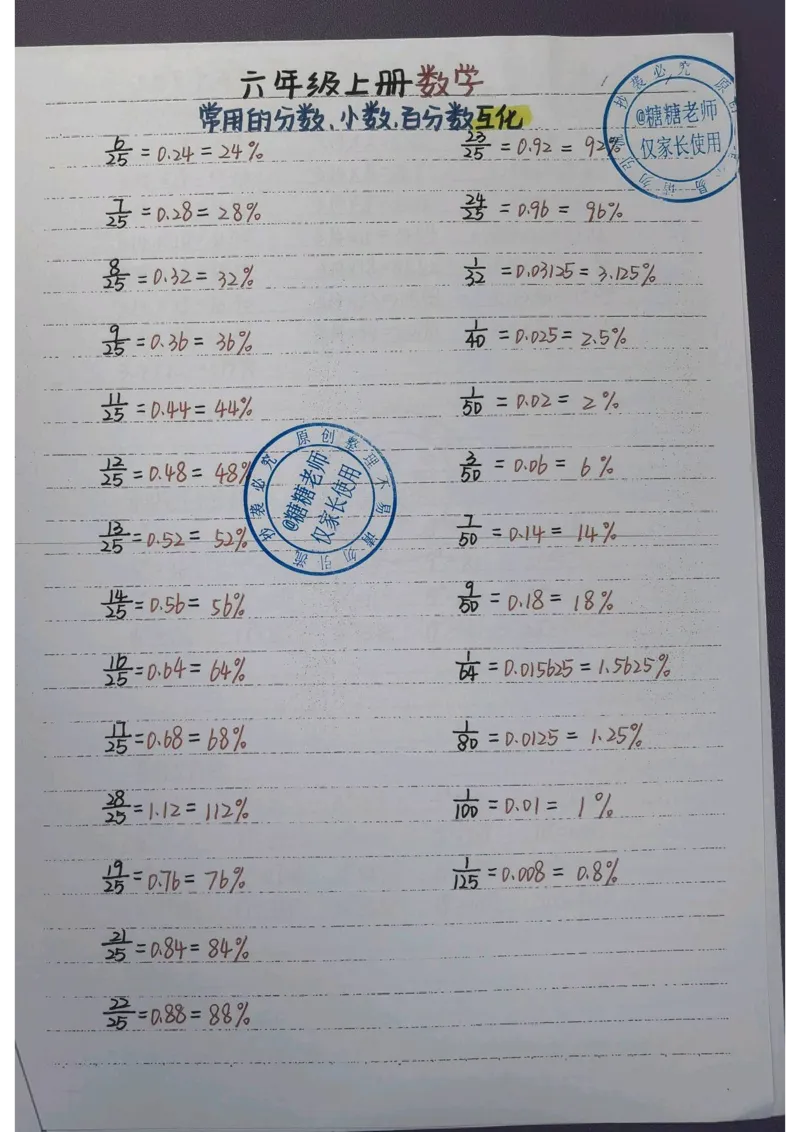 六年级上册数学
常用的分数、小数、百分数互化
6/25 = 0.24 = 24%
7/25 = 0.28 = 28%
8/25 = 0.32 = 32%
9/25 = 0.36 = 36%
11/25 = 0.44 = 44%
12/25 = 0.48 = 48%
13/25 = 0.52 = 52%
14/25 = 0.56 = 56%
16/25 = 0.64 = 64%
17/25 = 0.68 = 68%
28/25 = 1.12 = 112%
19/25 = 0.76 = 76%
21/25 = 0.84 = 84%
22/25 = 0.88 = 88%
23/25 = 0.92 = 92%
24/25 = 0.96 = 96%
1/32 = 0.03125 = 3.125%
1/40 = 0.025 = 2.5%
1/50 = 0.02 = 2%
3/50 = 0.06 = 6%
7/50 = 0.14 = 14%
9/50 = 0.18 = 18%
1/64 = 0.015625 = 1.5625%
1/80 = 0.0125 = 1.25%
1/100 = 0.01 = 1%
1/125 = 0.008 = 0.8%
原创整理不易请勿引流抄袭必究
@糖糖老师
仅家长使用
抄袭必究 原创
@糖糖老师
仅家长使用
易请勿引